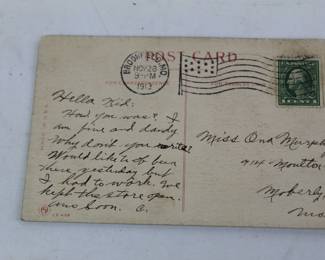 POST CARD
NOV 28
PM
1912
1 CENT 1
Hello Kid:
How you was? I
am fine and dandy
Why don't you write?
Would like to of bun
there yesterday but
I had to work. We
kept the store open.
ans soon. C.
Miss Ona
914 Moulton
Moberly,
Mo